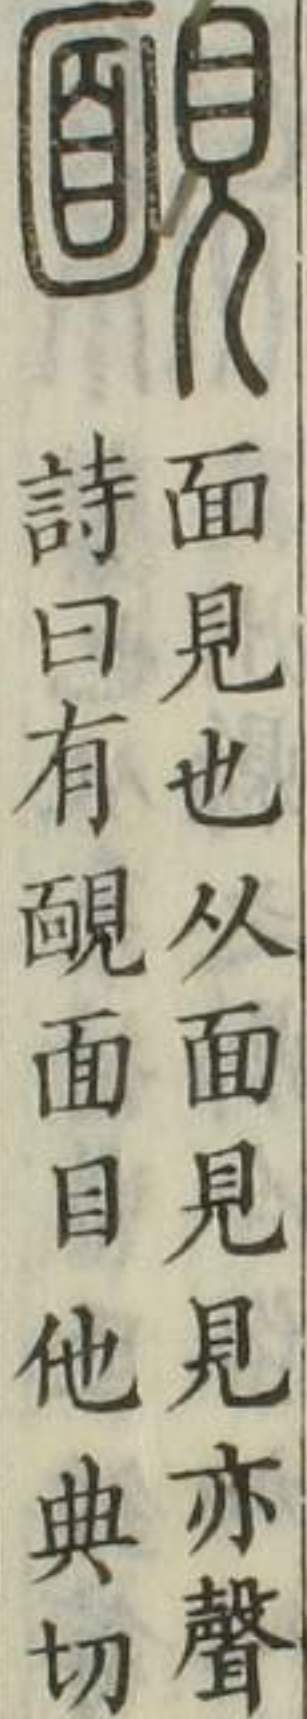 靦
面見也从面見見亦聲
詩曰有靦面目他典切